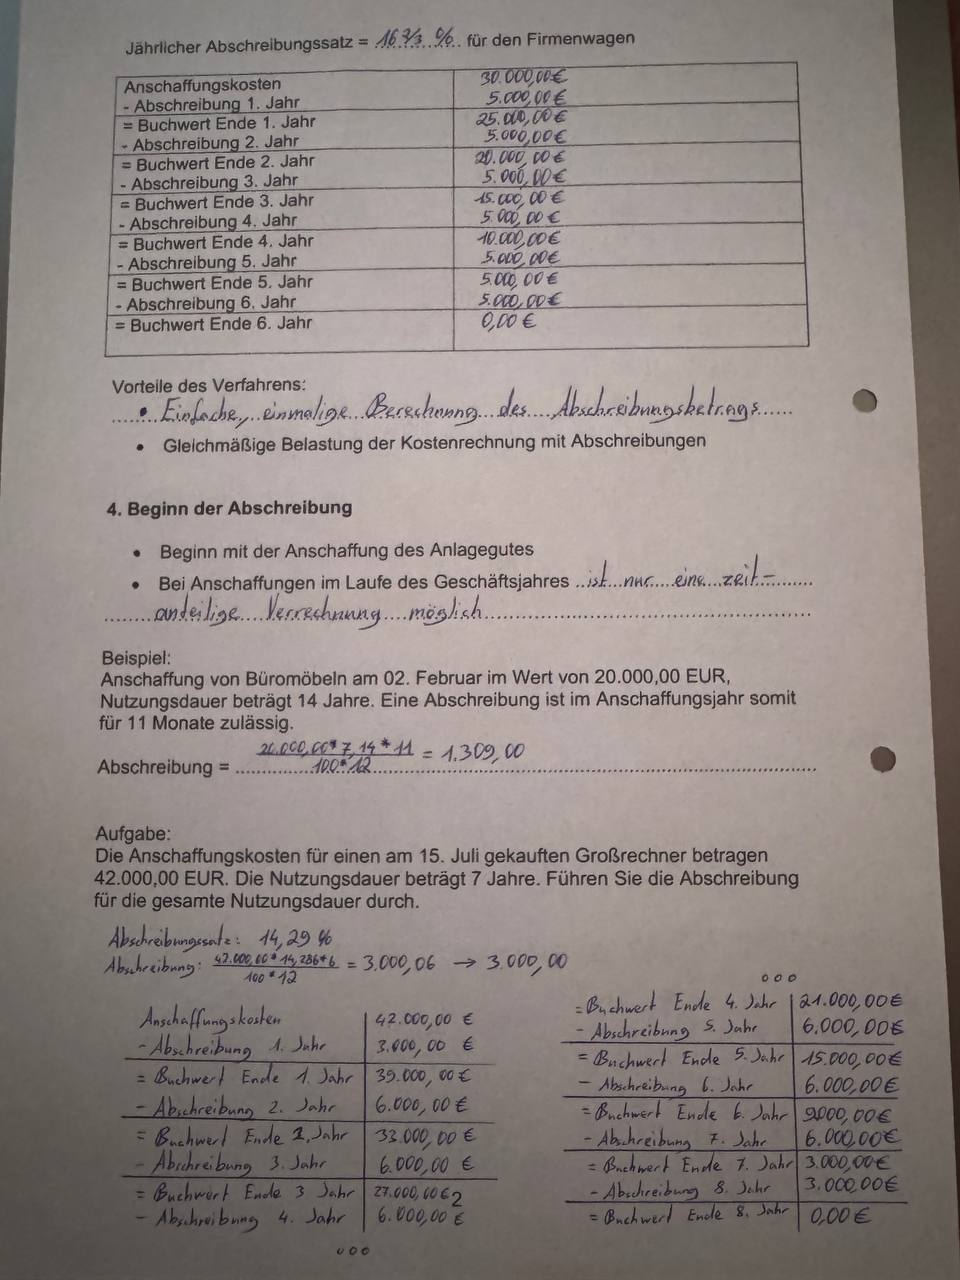 Jährlicher Abschreibungssatz = 16 2/3 % für den Firmenwagen
Anschaffungskosten 30.000,00€
- Abschreibung 1. Jahr 5.000,00€
= Buchwert Ende 1. Jahr 25.000,00€
- Abschreibung 2. Jahr 5.000,00€
= Buchwert Ende 2. Jahr 20.000,00€
- Abschreibung 3. Jahr 5.000,00€
= Buchwert Ende 3. Jahr 15.000,00€
- Abschreibung 4. Jahr 5.000,00€
= Buchwert Ende 4. Jahr 10.000,00€
- Abschreibung 5. Jahr 5.000,00€
= Buchwert Ende 5. Jahr 5.000,00€
- Abschreibung 6. Jahr 5.000,00€
= Buchwert Ende 6. Jahr 0,00€
Vorteile des Verfahrens:
• Einfache, einmalige Berechnung des Abschreibungsbetrags
• Gleichmäßige Belastung der Kostenrechnung mit Abschreibungen
4. Beginn der Abschreibung
• Beginn mit der Anschaffung des Anlagegutes
• Bei Anschaffungen im Laufe des Geschäftsjahres ist nur eine zeit-
anteilige Verrechnung möglich
Beispiel:
Anschaffung von Büromöbeln am 02. Februar im Wert von 20.000,00 EUR,
Nutzungsdauer beträgt 14 Jahre. Eine Abschreibung ist im Anschaffungsjahr somit
für 11 Monate zulässig.
20.000,00*7,14*11 = 1.309,00
Abschreibung = 100*12
Aufgabe:
Die Anschaffungskosten für einen am 15. Juli gekauften Großrechner betragen
42.000,00 EUR. Die Nutzungsdauer beträgt 7 Jahre. Führen Sie die Abschreibung
für die gesamte Nutzungsdauer durch.
Abschreibungssatz: 14,29 %
Abschreibung: 42.000,00*14,286*6 = 3.000,06 → 3.000,00
100*12
Anschaffungskosten 42.000,00 €
- Abschreibung 1. Jahr 3.000,00 €
= Buchwert Ende 1. Jahr 39.000,00€
- Abschreibung 2. Jahr 6.000,00€
= Buchwert Ende 2. Jahr 33.000,00€
- Abschreibung 3. Jahr 6.000,00 €
= Buchwert Ende 3 Jahr 27.000,00€
- Abschreibung 4. Jahr 6.000,00€
ooo
ooo
= Buchwert Ende 4. Jahr 21.000,00€
- Abschreibung 5. Jahr 6.000,00€
= Buchwert Ende 5. Jahr 15.000,00€
- Abschreibung 6. Jahr 6.000,00€
= Buchwert Ende 6. Jahr 9000,00€
- Abschreibung 7. Jahr 6.000,00€
= Buchwert Ende 7. Jahr 3.000,00€
- Abschreibung 8. Jahr 3.000,00€
= Buchwert Ende 8. Jahr 0,00€